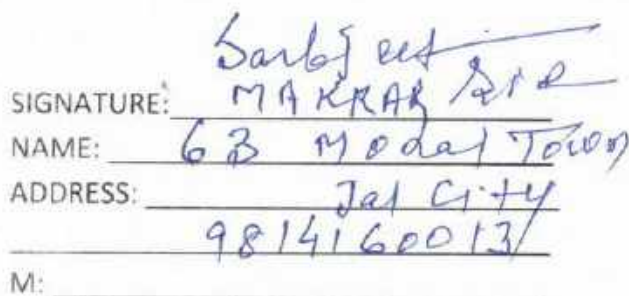 Sarbjeet
SIGNATURE: MAKKAR
NAME: 63 Modal Town
ADDRESS: Jal City
9814160013
M: